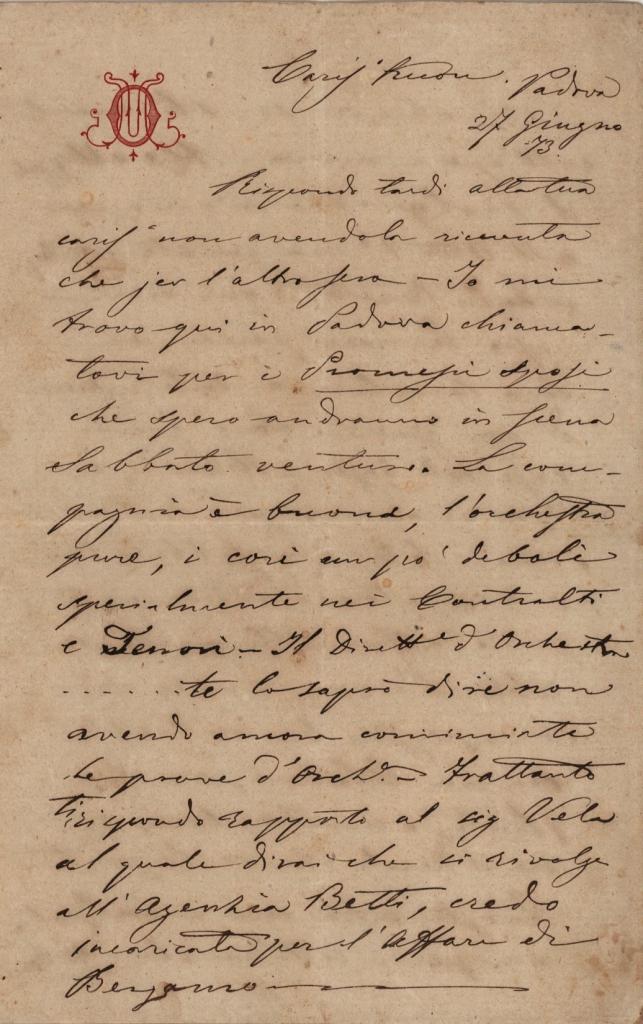 Cariss.o
Padova
27 Giugno
73.
Rispondo tardi alla tua
cariss.a non avendola ricevuta
che jer l'altro sera – Io mi
trovo qui in Padova chiama-
tovi per i Promessi sposi
che spero andranno in scena
Sabbato venturo. La com-
pagnia è buona, l'orchestra
pure, i cori un po' deboli
specialmente nei Contralti
e Tenori – Il Dirett.e d'Orchestra
. . . . . . te lo saprò dire non
avendo ancora cominciate
le prove d'Orch.a – Frattanto
ti rispondo rapporto al sig Vela
al quale dirai che si rivolga
all'Agenzia Betti, credo
incaricata per l'Affare di
Bergamo